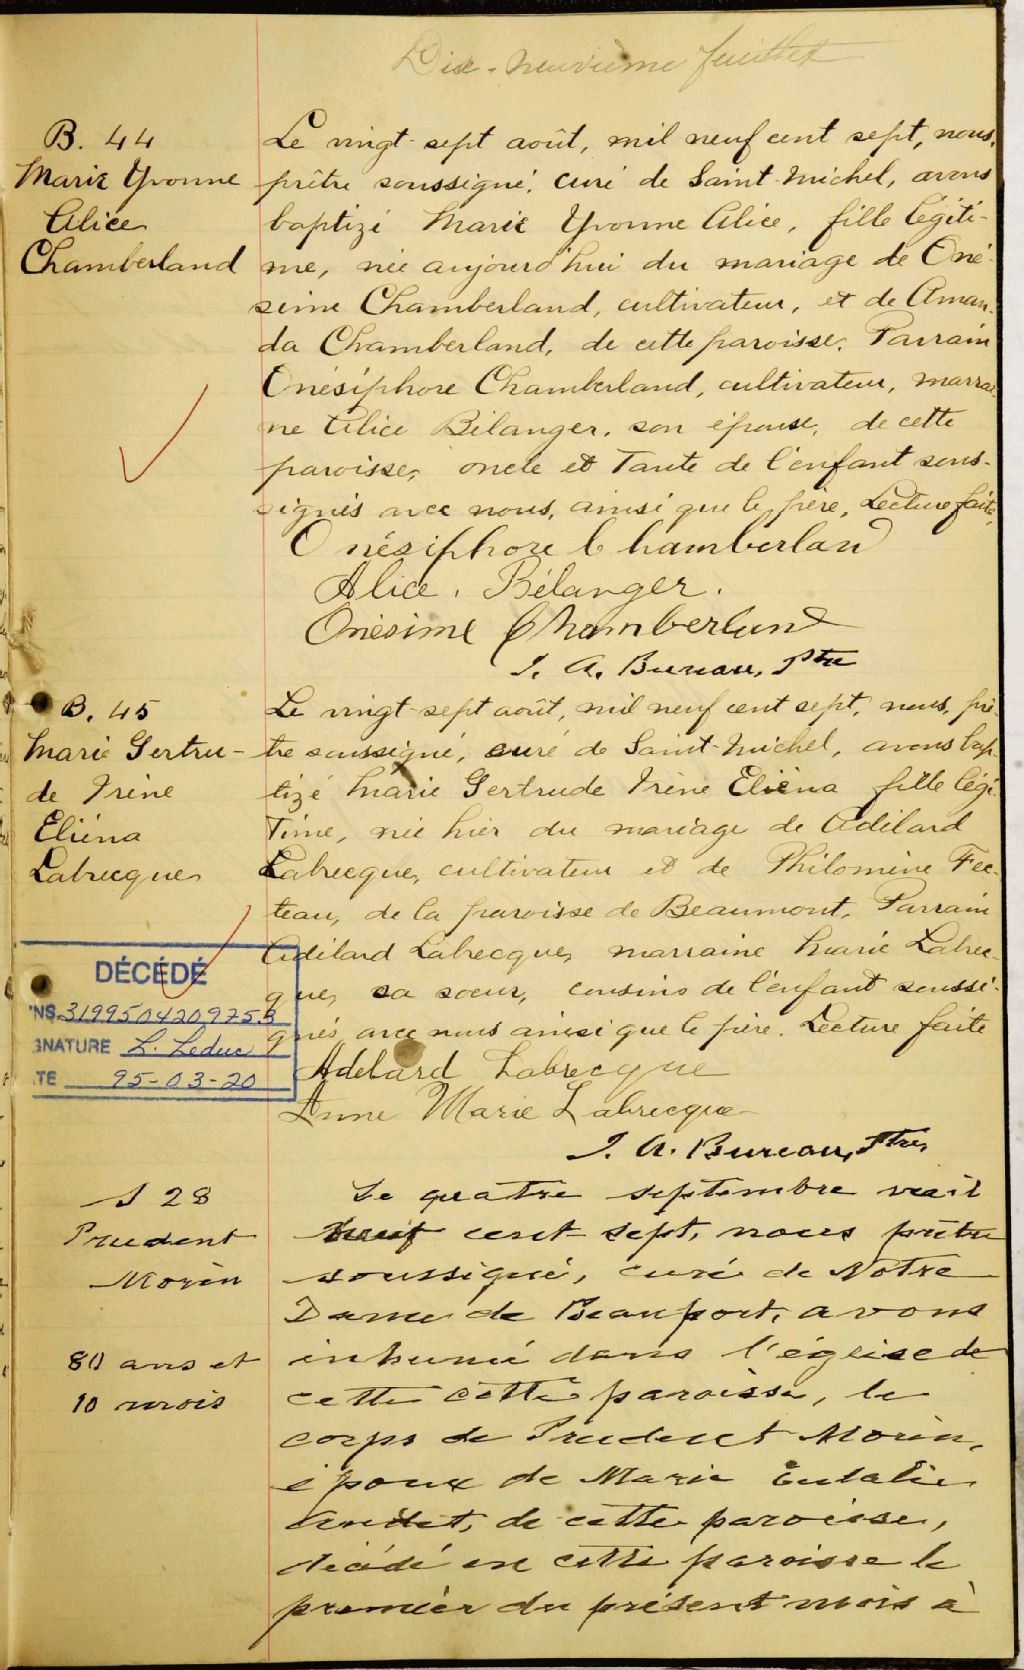 Dix-neuvième feuillet
B. 44
Marie Yvonne
Alice
Chamberland
Le vingt-sept août, mil neuf cent sept, nous,
prêtre soussigné, curé de Saint-Michel, avons
baptizé Marie Yvonne Alice, fille légiti-
me, née aujourd'hui du mariage de Oné-
sime Chamberland, cultivateur, et de Aman-
da Chamberland, de cette paroisse. Parrain
Onésiphore Chamberland, cultivateur, marrai-
ne Alice Bélanger, son épouse, de cette
paroisse, oncle et Tante de l'enfant sous-
signés avec nous, ainsi que le père, Lecture faite,
Onésiphore Chamberland
Alice. Bélanger.
Onésime Chamberland
J. A. Bureau, Ptre
B. 45
Marie Gertru-
de Irène
Eliéna
Labrecque
Le vingt-sept août, mil neuf cent sept, nous, prê-
tre soussigné, curé de Saint-Michel, avons bap-
tizé Marie Gertrude Irène Eliéna fille légi-
Time, née hier du mariage de Adélard
Labrecque, cultivateur et de Philomène Fec-
teau, de la paroisse de Beaumont. Parrain
Adélard Labrecque, marraine Marie Labrec-
que, sa soeur, cousins de l'enfant soussi-
gnés avec nous ainsi que le père. Lecture faite
Adelard Labrecque
Anne Marie Labrecque
J. A. Bureau, Ptre,
DÉCÉDÉ
NS 3199504209753
GNATURE L. Leduc
TE 95-03-20
S 28
Prudent
Morin
80 ans et
10 mois
Le quatre septembre mil
neuf cent sept, nous prêtre
soussigné, curé de Notre
Dame de Beauport, avons
inhumé dans l'église de
cette cette paroisse, le
corps de Prudent Morin,
époux de Marie Eulalie
Audet, de cette paroisse,
décédé en cette paroisse le
premier du présent mois à